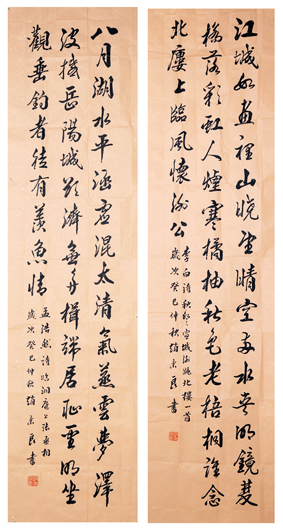 江城如畫裡山晚望晴空兩水夾明鏡雙
橋落彩虹人煙寒橘柚秋色老梧桐誰念
北樓上臨風懷謝公
李白詩秋登宣城謝朓北樓一首
歲次癸巳仲秋趙東民書
八月湖水平涵虛混太清氣蒸雲夢澤
波撼岳陽城欲濟無舟楫端居恥聖明坐
觀垂釣者徒有羨魚情
孟浩然詩臨洞庭上張丞相
歲次癸巳仲秋趙東民書